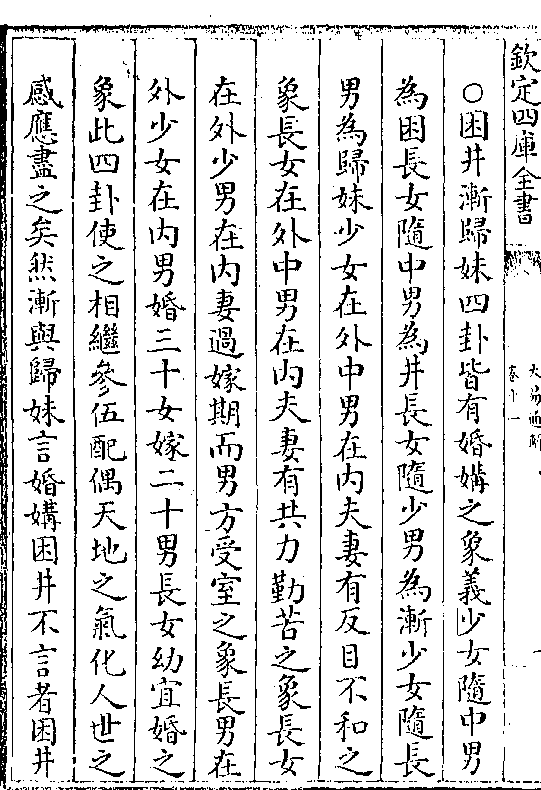 欽定四庫全書
大易通解
卷十一
○困井漸歸妹四卦皆有婚媾之象義少女隨中男
為困長女隨中男為井長女隨少男為漸少女隨長
男為歸妹少女在外中男在内夫妻有反目不和之
象長女在外中男在内夫妻有共力勤苦之象長女
在外少男在内妻過嫁期而男方受室之象長男在
外少女在内男婚三十女嫁二十男長女幼宜婚之
象此四卦使之相繼參伍配偶天地之氣化人世之
感應盡之矣然漸與歸妹言婚媾困井不言者困井